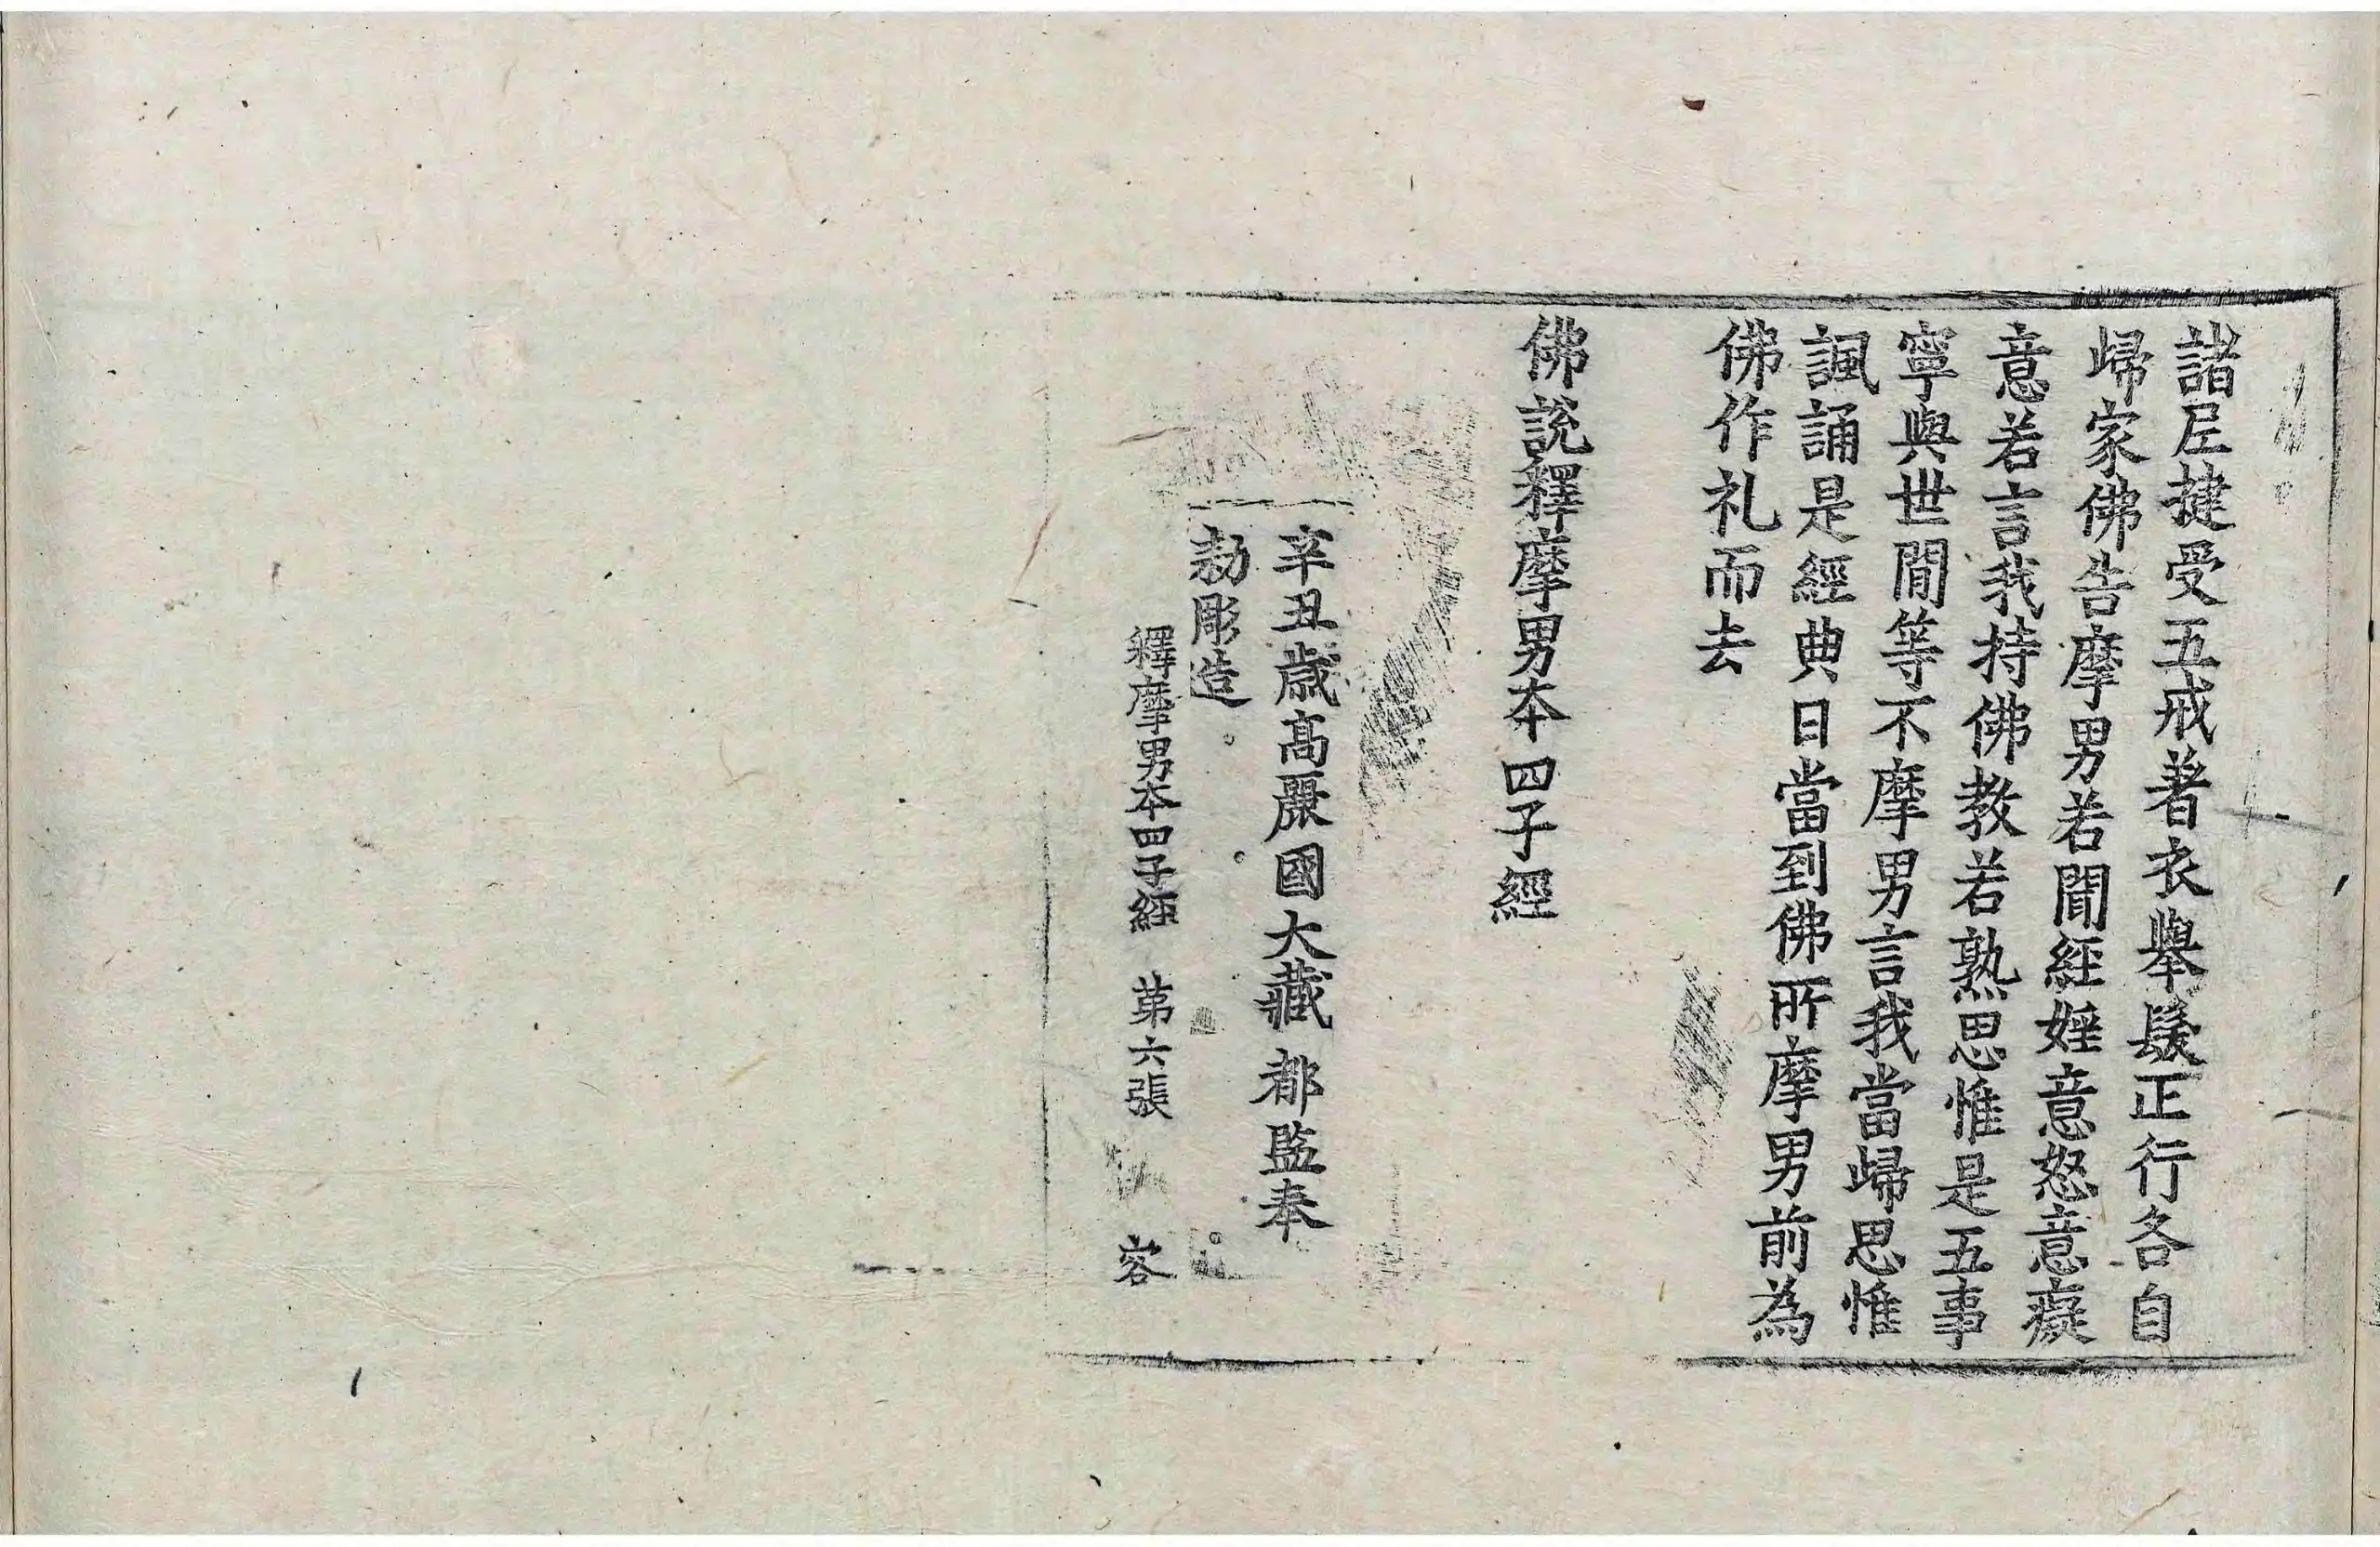 諸尼揵受五戒著衣舉髮正行各自
歸家佛告摩男若聞經婬意怒意癡
意若言我持佛教若熟思惟是五事
寧與世間等不摩男言我當歸思惟
諷誦是經典日當到佛所摩男前為
佛作礼而去
佛說釋摩男夲四子經
辛丑歲高麗國大藏都監奉
勑彫造
釋摩男夲四子經 第六張 容